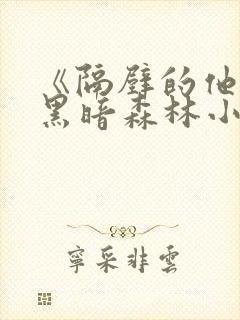 《隔壁的他
黑暗森林小
寧采非雲